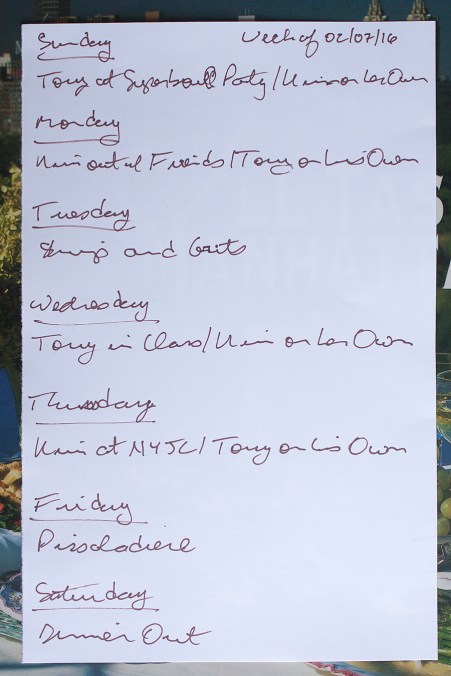 Sunday Week of 02/07/16
Tony at Superbowl Party/Kim on her Own
Monday
Kim out w/ Friends/Tony on his Own
Tuesday
Shrimp and Grits
Wednesday
Tony in Class/Kim on her Own
Thursday
Kim at NYJL/Tony on his Own
Friday
Pissaladiere
Saturday
Dinner Out